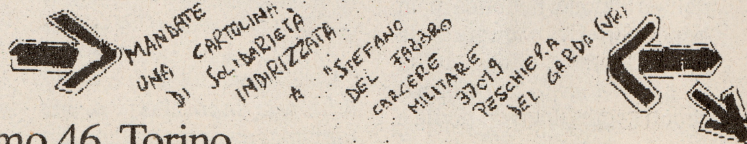 MANDATE
UNA CARTOLINA
DI SOLIDARIETÀ
INDIRIZZATA
A "STEFANO
DEL FABBRO
CARCERE
MILITARE
37019
PESCHIERA
DEL GARDA (VR)
mo 46, Torino